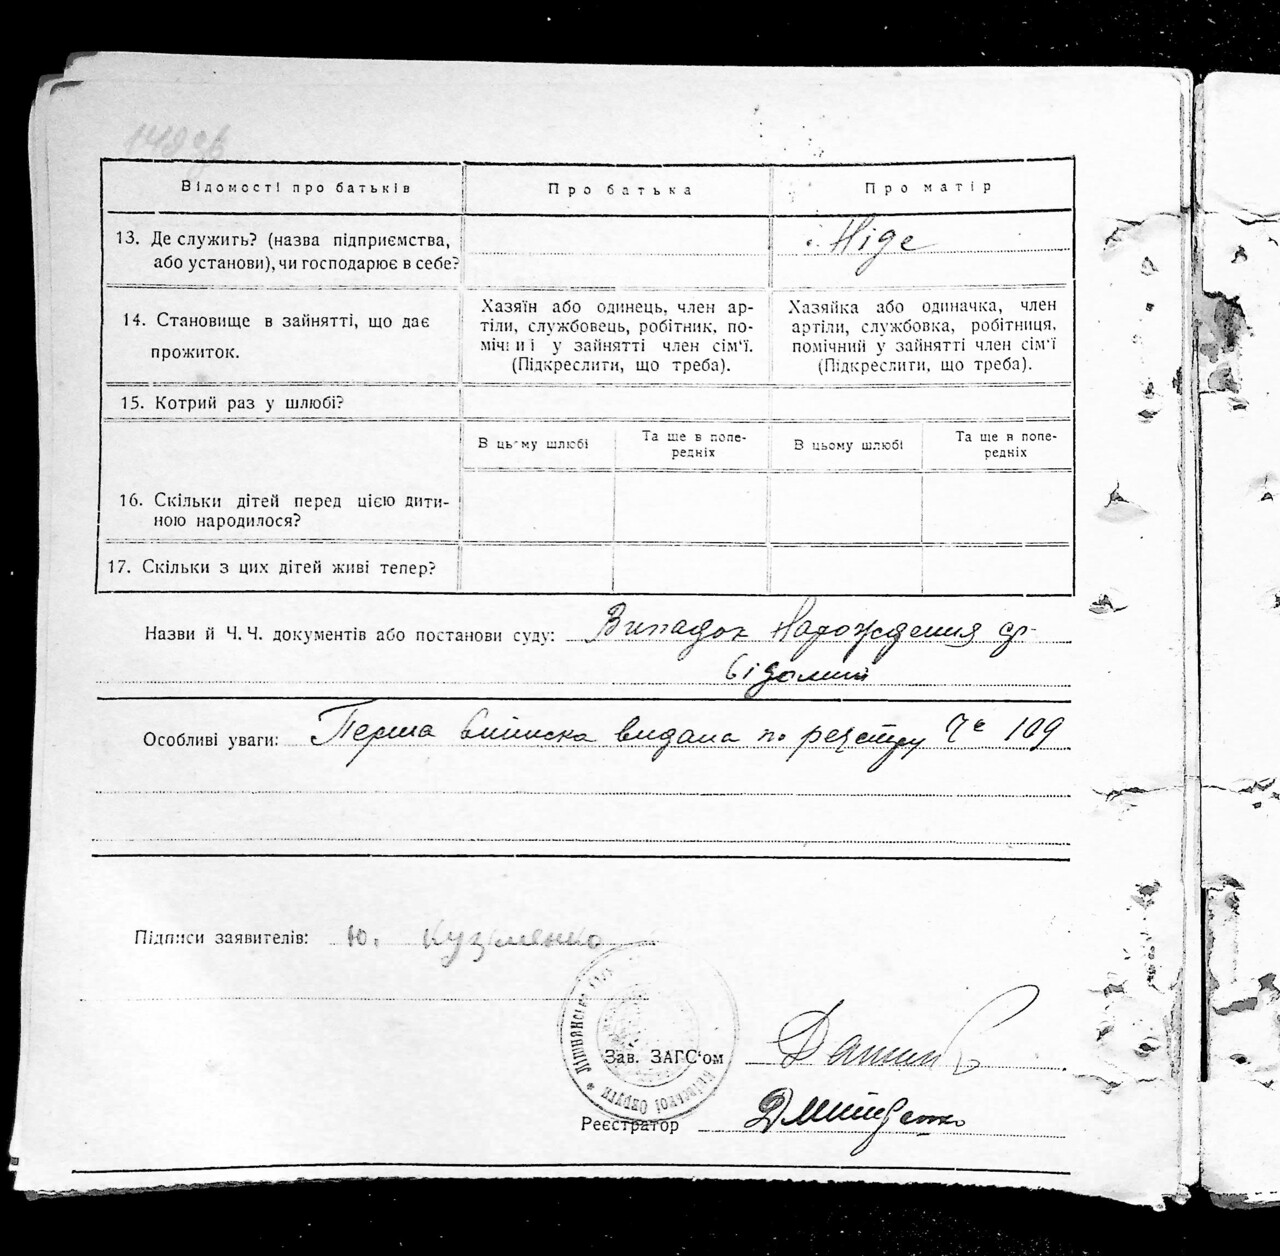 149 зв
Відомості про батьків
Про батька
Про матір
13. Де служить? (назва підприємства,
або установи), чи господарює в себе?
Ніде
14. Становище в зайнятті, що дає
прожиток.
Хазяїн або одинець, член ар-
тіли, службовець, робітник, по-
мічний у зайнятті член сім'ї.
(Підкреслити, що треба).
Хазяйка або одиначка, член
артіли, службовка, робітниця,
помічний у зайнятті член сім'ї
(Підкреслити, що треба).
15. Котрий раз у шлюбі?
В цьому шлюбі
Та ще в попе-
редніх
В цьому шлюбі
Та ще в попе-
редніх
16. Скільки дітей перед цією дити-
ною народилося?
17. Скільки з цих дітей живі тепер?
Назви й Ч. Ч. документів або постанови суду: Випадок Народження
відомий
Особливі уваги: Перша виписка видана по реєстру Ч 109
Підписи заявителів: Ю. Кузьменко
Київської Округи
Зав. ЗАГС'ом
Реєстратор